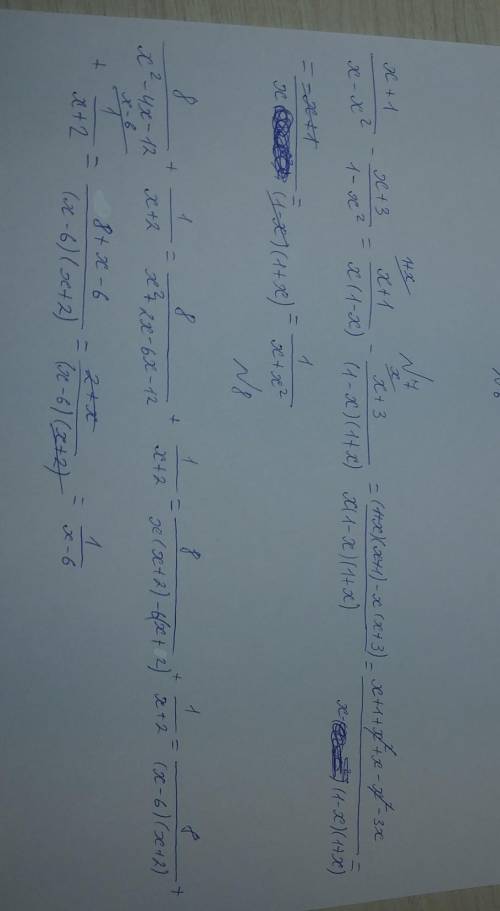 N 7
\frac{x+1}{x-x^2} - \frac{x+3}{1-x^2} = \frac{x+1}{x(1-x)}^{1+x} - \frac{x+3}{(1-x)(1+x)}^{x} = \frac{(1+x)(x+1)-x(x+3)}{x(1-x)(1+x)} = \frac{x+1+x^2+x-x^2-3x}{x(1-x)(1+x)} =
= \frac{-x+1}{x(1-x)(1+x)} = \frac{1}{x+x^2}
N 8
\frac{8}{x^2-4x-12} + \frac{1}{x+2} = \frac{8}{x^2+2x-6x-12} + \frac{1}{x+2} = \frac{8}{x(x+2)-6(x+2)} + \frac{1}{x+2} = \frac{8}{(x-6)(x+2)} +
+ \frac{1}{x+2}^{x-6} = \frac{8+x-6}{(x-6)(x+2)} = \frac{2+x}{(x-6)(x+2)} = \frac{1}{x-6}